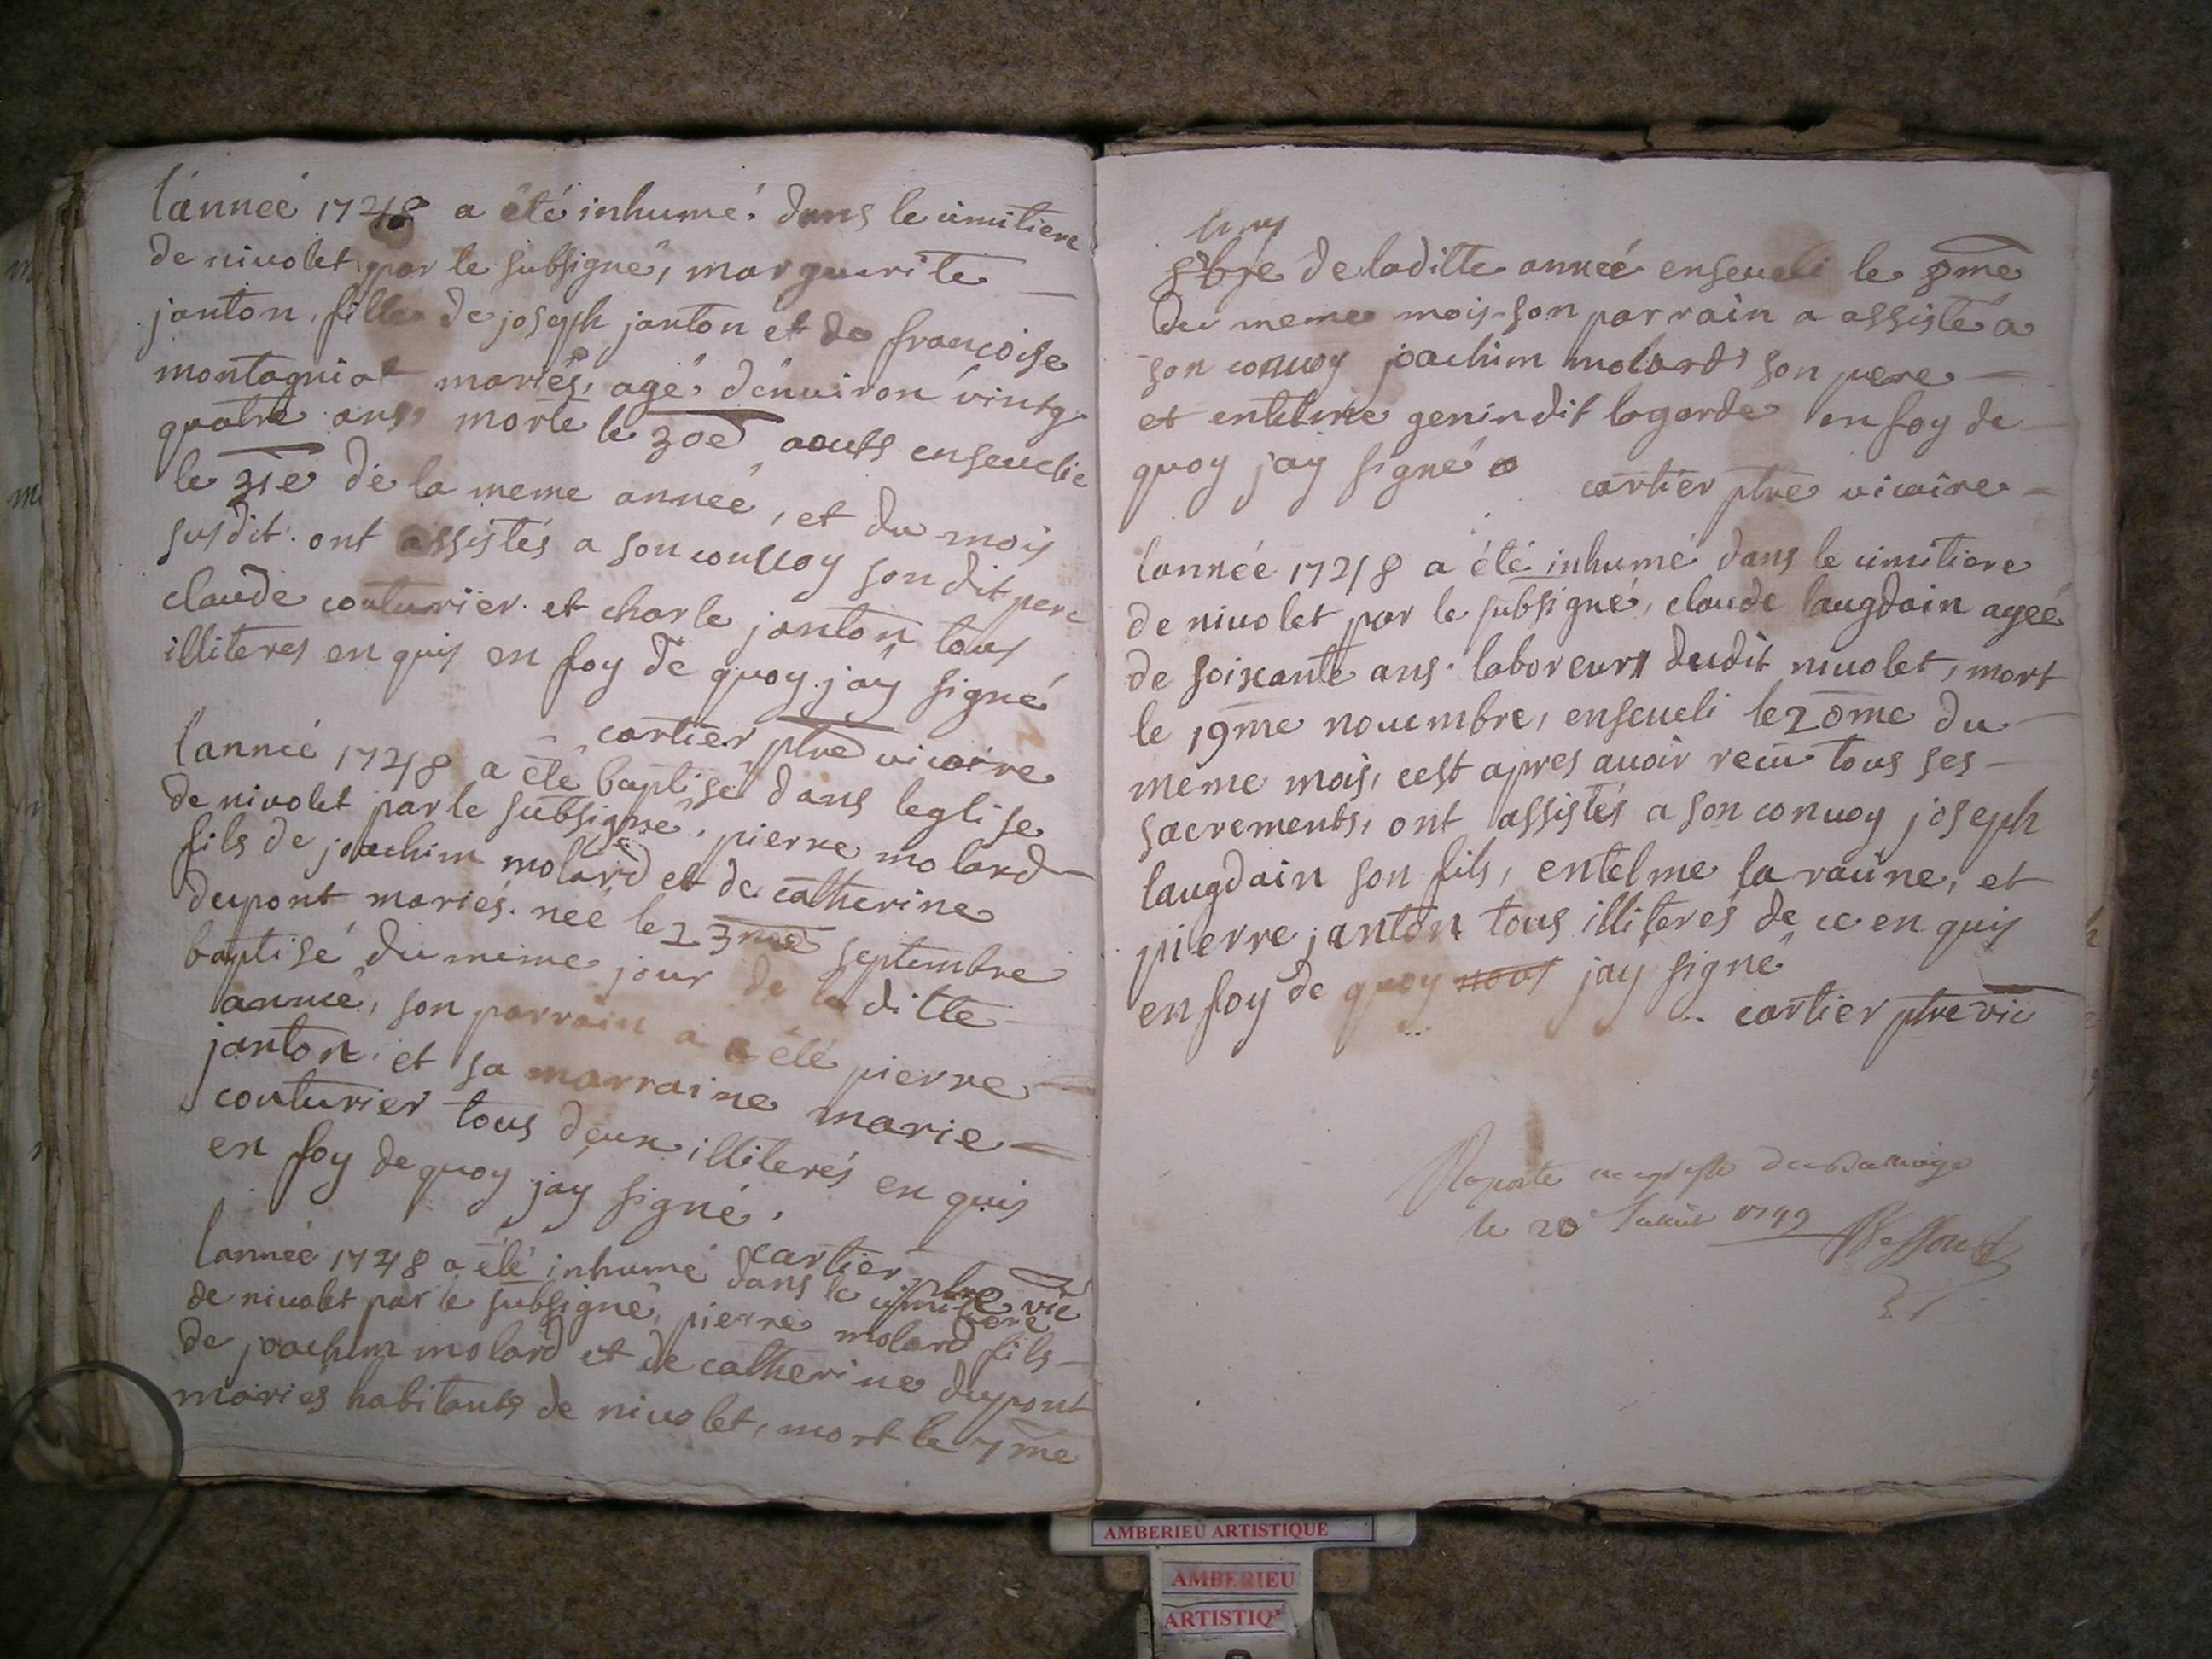 l'anneé 1748 a été inhumé dans le cimitiere
de nivolet par le subsigné, marguerite
janton, fille de joseph janton et de françoise
montagniat mariés, agé d'énviron vintg
quatre ans, morte le 30e aouts enseuelie
le 31e de la meme anneé, et du mois
susdit. ont assistés a son conuoy son dit pere
claude couturier. et charle janton tous
illiteres en quis en foy de quoy jáy signé
cartier ptre vicaire
lanneé 1748 a été baptisé dans leglise
de nivolet par le subsigné, pierre molard
fils de joachim molard et de catherine
dupont mariés. neé le 23me septembre
baptisé du meme jour de la ditte
anneé, son parrain a été pierre
janton. et sa marraine marie
couturier tous deux illiterés en quis
en foy de quoy jáy signé.
cartier ptre vic
lanneé 1748 a été inhumé dans le cimitiere
de nivolet par le subsigné, pierre molard fils
de joachim molard et de catherine dupont
mariés habitants de nivolet, mort le 7me
de laditte anneé enseueli le 8me
du meme mois. son parrain a assisté a
son conuoy joachim molard son pere
et entelme genin dit lagarde en foy de
quoy jay signé
cartier ptre vicaire
lanneé 1748 a été inhumé dans le cimitiere
de nivolet par le subsigné, claude laugdain ageé
de soixante ans. laboreur dudit nivolet, mort
le 19me nouembre, enseueli le 20me du
meme mois, cest apres auoir recu tous ses
sacrements, ont assistés a son conuoy joseph
laugdain son fils, entelme la raüne, et
pierre janton tous illiterés de ce en quis
en foy de quoy nous jay signé
cartier ptre vic
le 20 1749
AMBERIEU ARTISTIQUE
AMBERIEU
ARTISTIQ